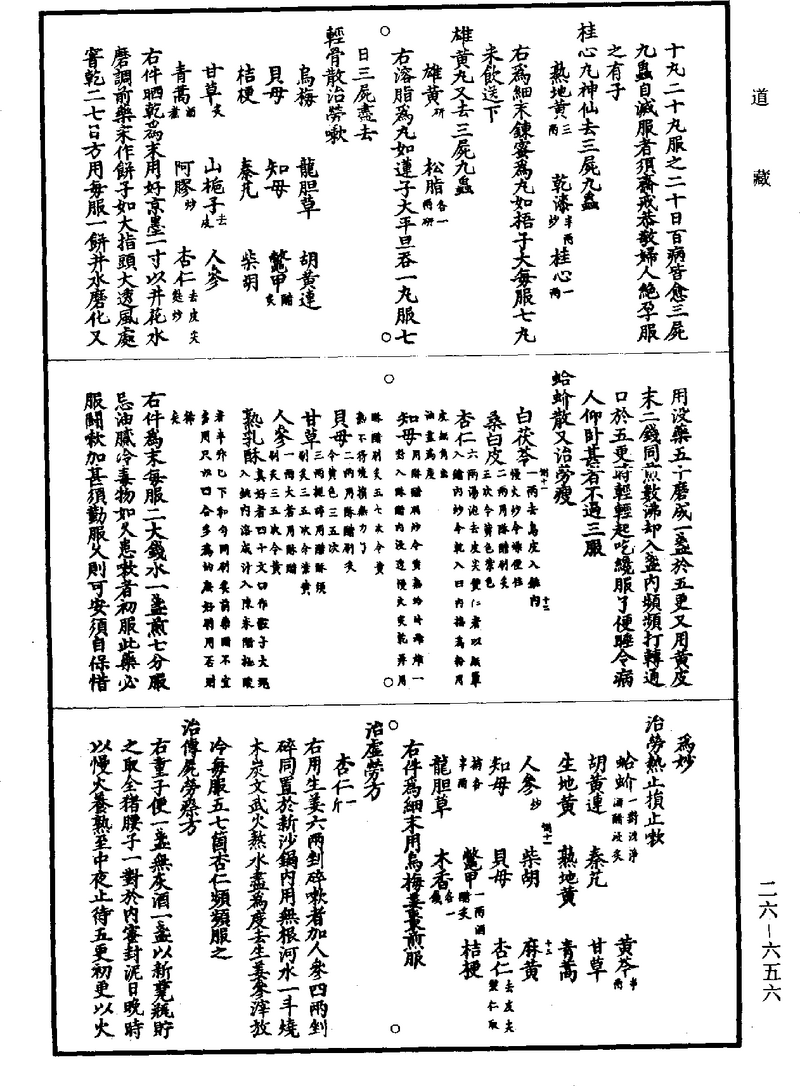 道藏
十丸二十丸服之二十日百病皆愈三屍
九蟲自滅服者須齋戒恭敬婦人絕孕服
之有子
桂心丸神仙去三屍九蟲
熟地黃三兩 乾漆半兩炒 桂心一兩
右爲細末鍊蜜爲丸如梧子大每服七丸
米飲送下
雄黃丸又去三屍九蟲
雄黃研 松脂各一兩研
右溶脂爲丸如蓮子大平旦吞一丸服七
日三屍盡去
輕骨散治勞嗽
烏梅 龍胆草 胡黃連
貝母 知母 鱉甲醋炙
桔梗 秦艽 柴胡
甘草炙 山梔子去皮 人參
青蒿 阿膠炒 杏仁去皮尖麩炒
右件晒乾爲末用好京墨一寸以井花水
磨調前藥末作餅子如大指頭大透風處
窨乾二七日方用每服一餅井水磨化又
用没藥五十磨成一盞於五更又用黃皮
末二錢同煎數沸却入盞內頻頻打轉通
口於五更時輕輕起吃纔服了便睡令病
人仰卧甚者不過三服
蛤蚧散又治勞瘦
白茯苓一兩去烏皮入銚內慢火炒令燥便住
桑白皮二兩用酥醋刷炙三次令黃色紫色
杏仁六兩湯泡去皮尖雙仁者以紙單
知母一兩用酥醋刷
貝母二兩用酥醋刷炙令黃色三五次
甘草三兩搥碎用醋酥頻刷炙三五次令紫黃
人參一兩大者用酥醋刷炙三五次令黃
熟乳酥真好者四十文切作骰子大
右件爲末每服二大錢水一盞煎七分服
忌油膩冷毒物如久患嗽者初服此藥必
服鬪嗽加甚須勤服久則可安須自保惜
爲妙
治勞熱止損止嗽
蛤蚧一對洗淨酒醋浸炙 黃芩半兩
胡黃連 秦艽 甘草
生地黃 熟地黃 青蒿
人參炒 柴胡 麻黃
知母 貝母 杏仁去皮尖雙仁取
鱉甲一兩酒醋炙 桔梗
龍胆草 木香各一錢
右件爲細末用烏梅薑棗煎服
治虛勞方
杏仁一斤
右用生姜六兩剉碎嗽者加人參四兩剉
碎同置於新沙鍋內用無根河水一斗燒
木炭文武火熬水盡爲度去生姜參滓放
冷每服五七箇杏仁頻頻服之
治傳屍勞瘵方
右童子便一盞無灰酒一盞以新甆瓶貯
之取全猪腰子一對於內密封泥日晚時
以慢火養熟至中夜止待五更初更以火
二六—六五六